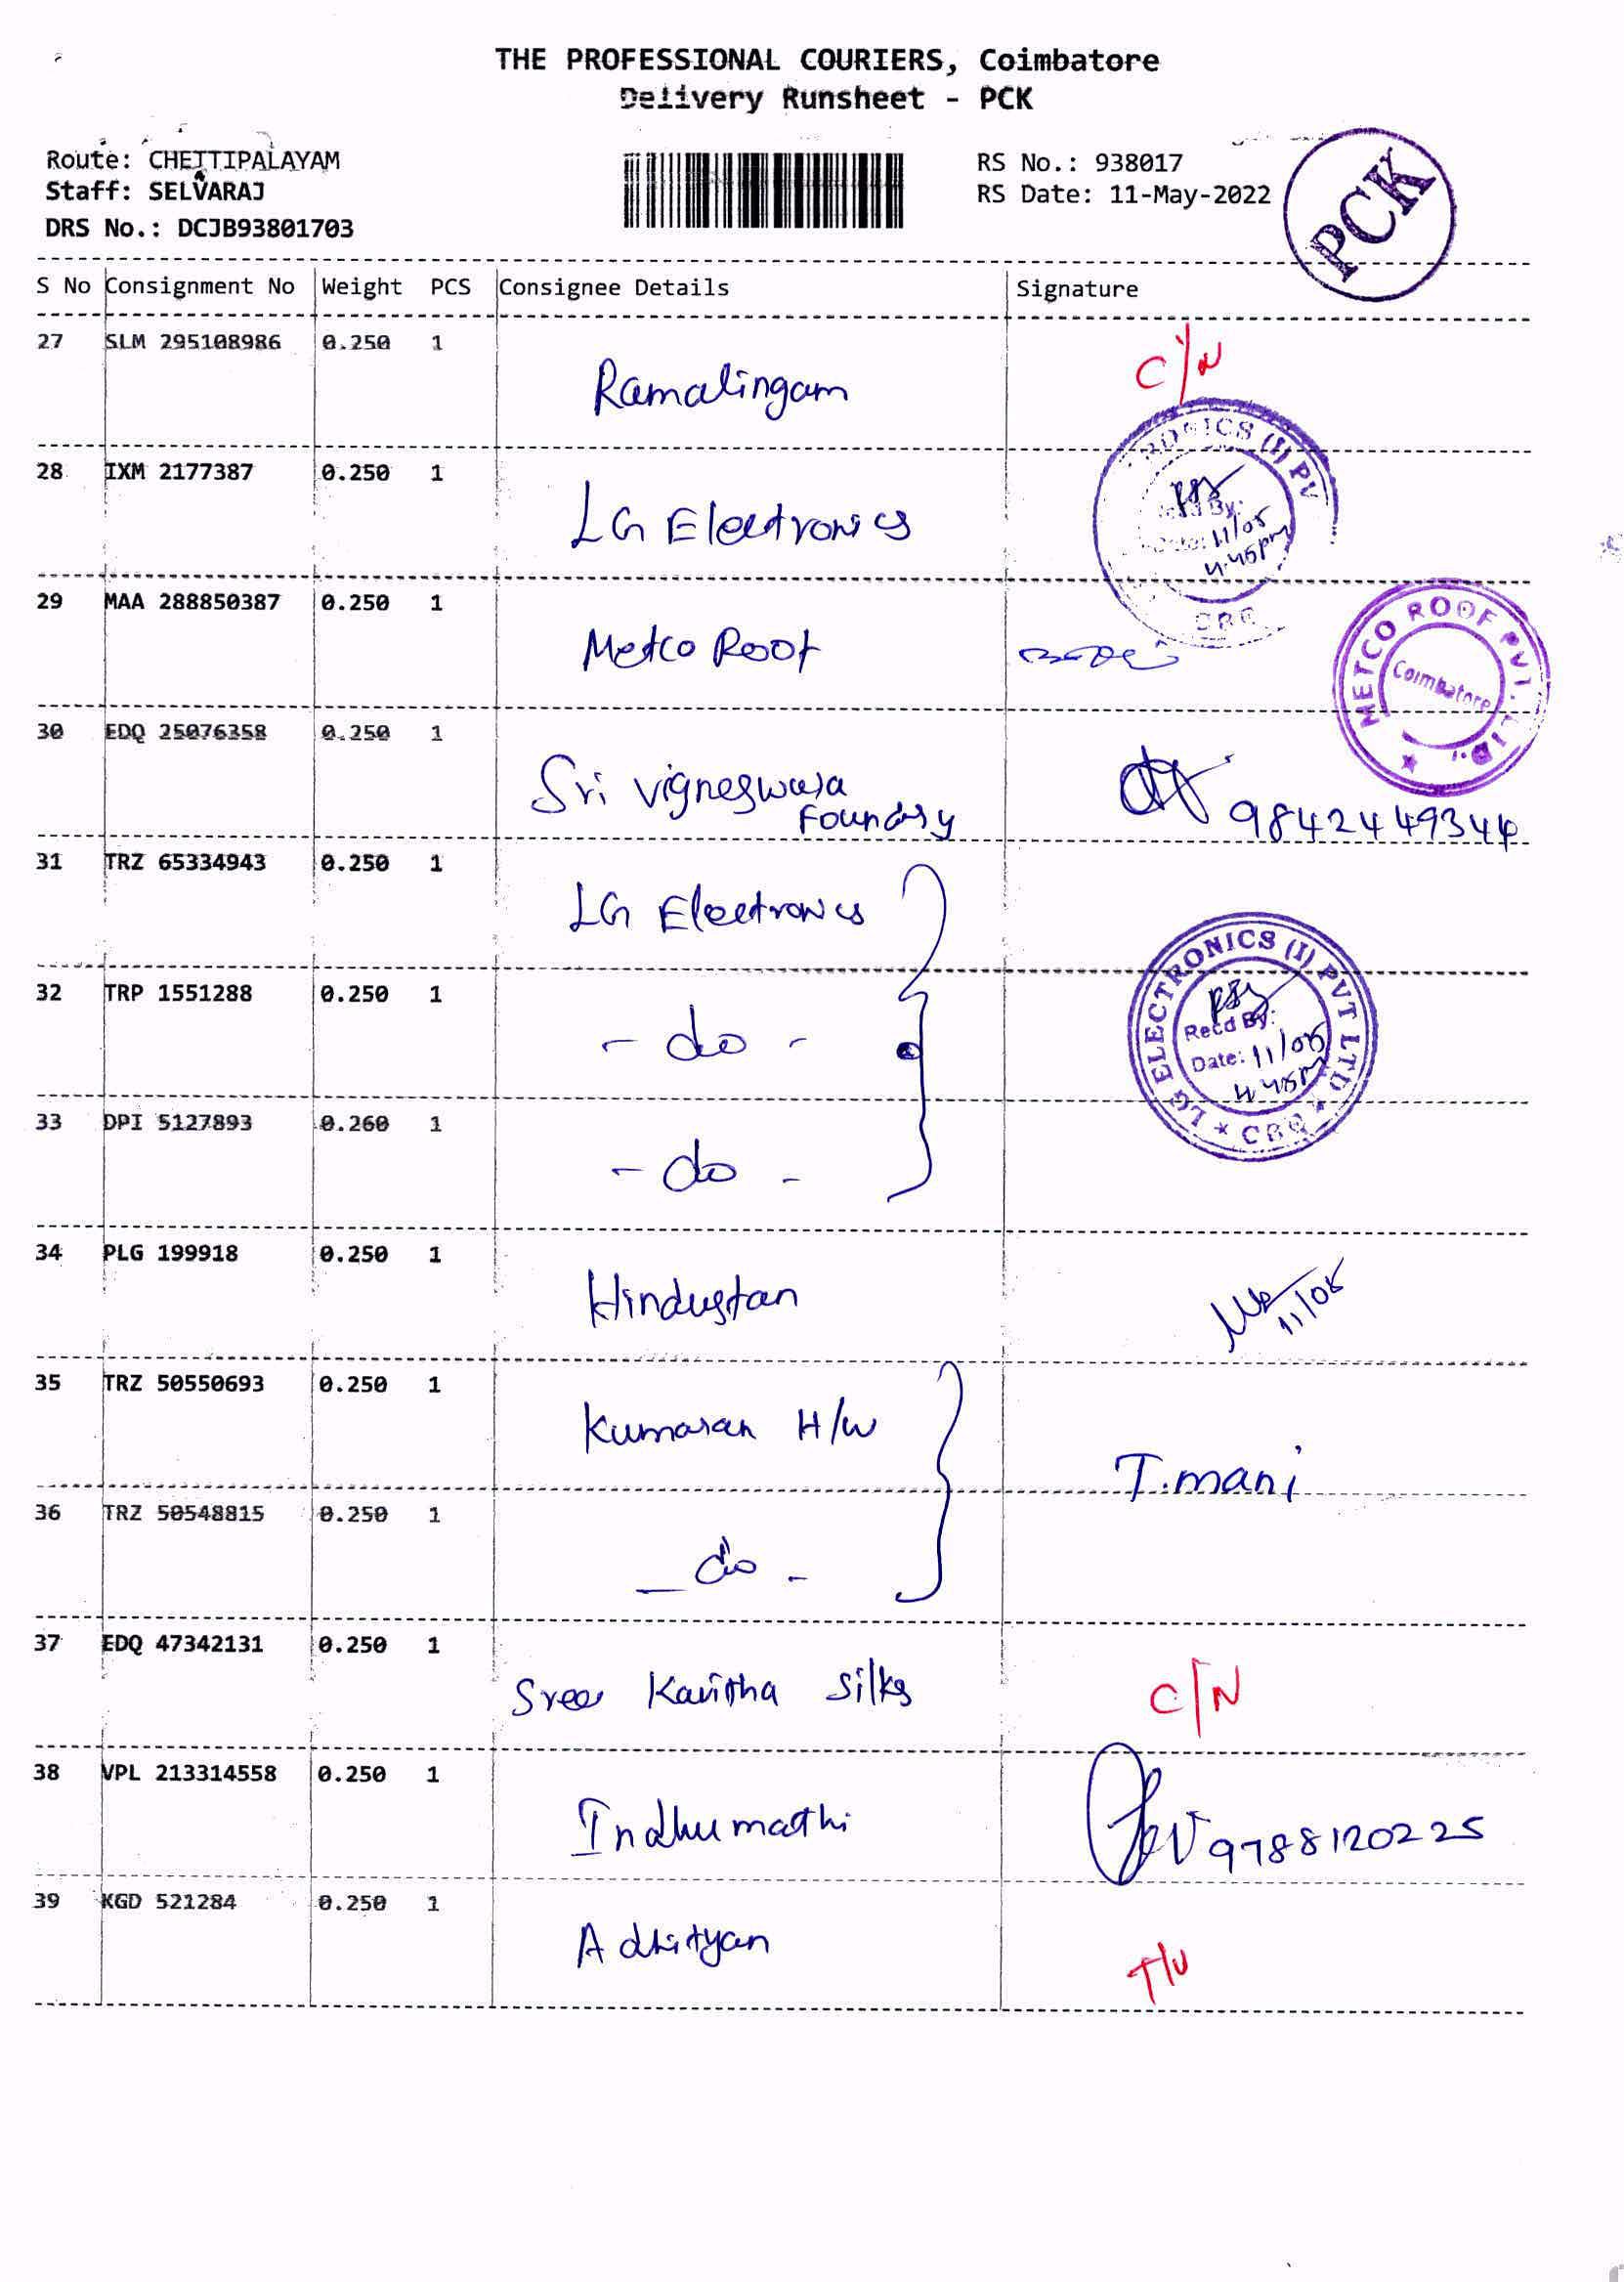 THE PROFESSIONAL COURIERS, Coimbatore
Delivery Runsheet - PCK
Route: CHETTIPALAYAM
Staff: SELVARAJ
DRS No.: DCJB93801703
RS No.: 938017
RS Date: 11-May-2022
PCK
S No Consignment No Weight PCS Consignee Details Signature
27 SLM 295108986 0.250 1 Ramalingam C/N
28 IXM 2177387 0.250 1 LG Electronics
RONICS (I) PV
By:
Date: 11/05
4.45pm
CBE
29 MAA 288850387 0.250 1 Metco Roof
METCO ROOF PVT. LTD.
Coimbatore
30 EDQ 25076358 0.250 1 Sri Vigneswara
Foundry 9842449344
31 TRZ 65334943 0.250 1 LG Electronics
32 TRP 1551288 0.250 1 - do -
LG ELECTRONICS (I) PVT LTD
Recd By:
Date: 11/05
4.45pm
CBE
33 DPI 5127893 0.260 1 - do -
34 PLG 199918 0.250 1 Hindustan
11/05
35 TRZ 50550693 0.250 1 Kumaran H/w
T.mani
36 TRZ 50548815 0.250 1 - do -
37 EDQ 47342131 0.250 1 Sree Kavitha Silks C/N
38 VPL 213314558 0.250 1 Indhumathi 9788120225
39 KGD 521284 0.250 1 Adhityan